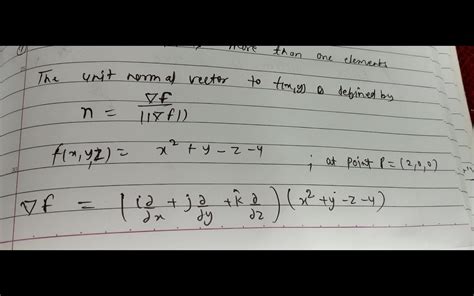 more than one elements
The unit normal vector to f(x,y) is defined by
n = ∇f / ||∇f||
f(x,y,z) = x² + y - z - 4 ; at point P = (2,0,0)
∇f = (i ∂/∂x + j ∂/∂y + k̂ ∂/∂z) (x² + y - z - 4)